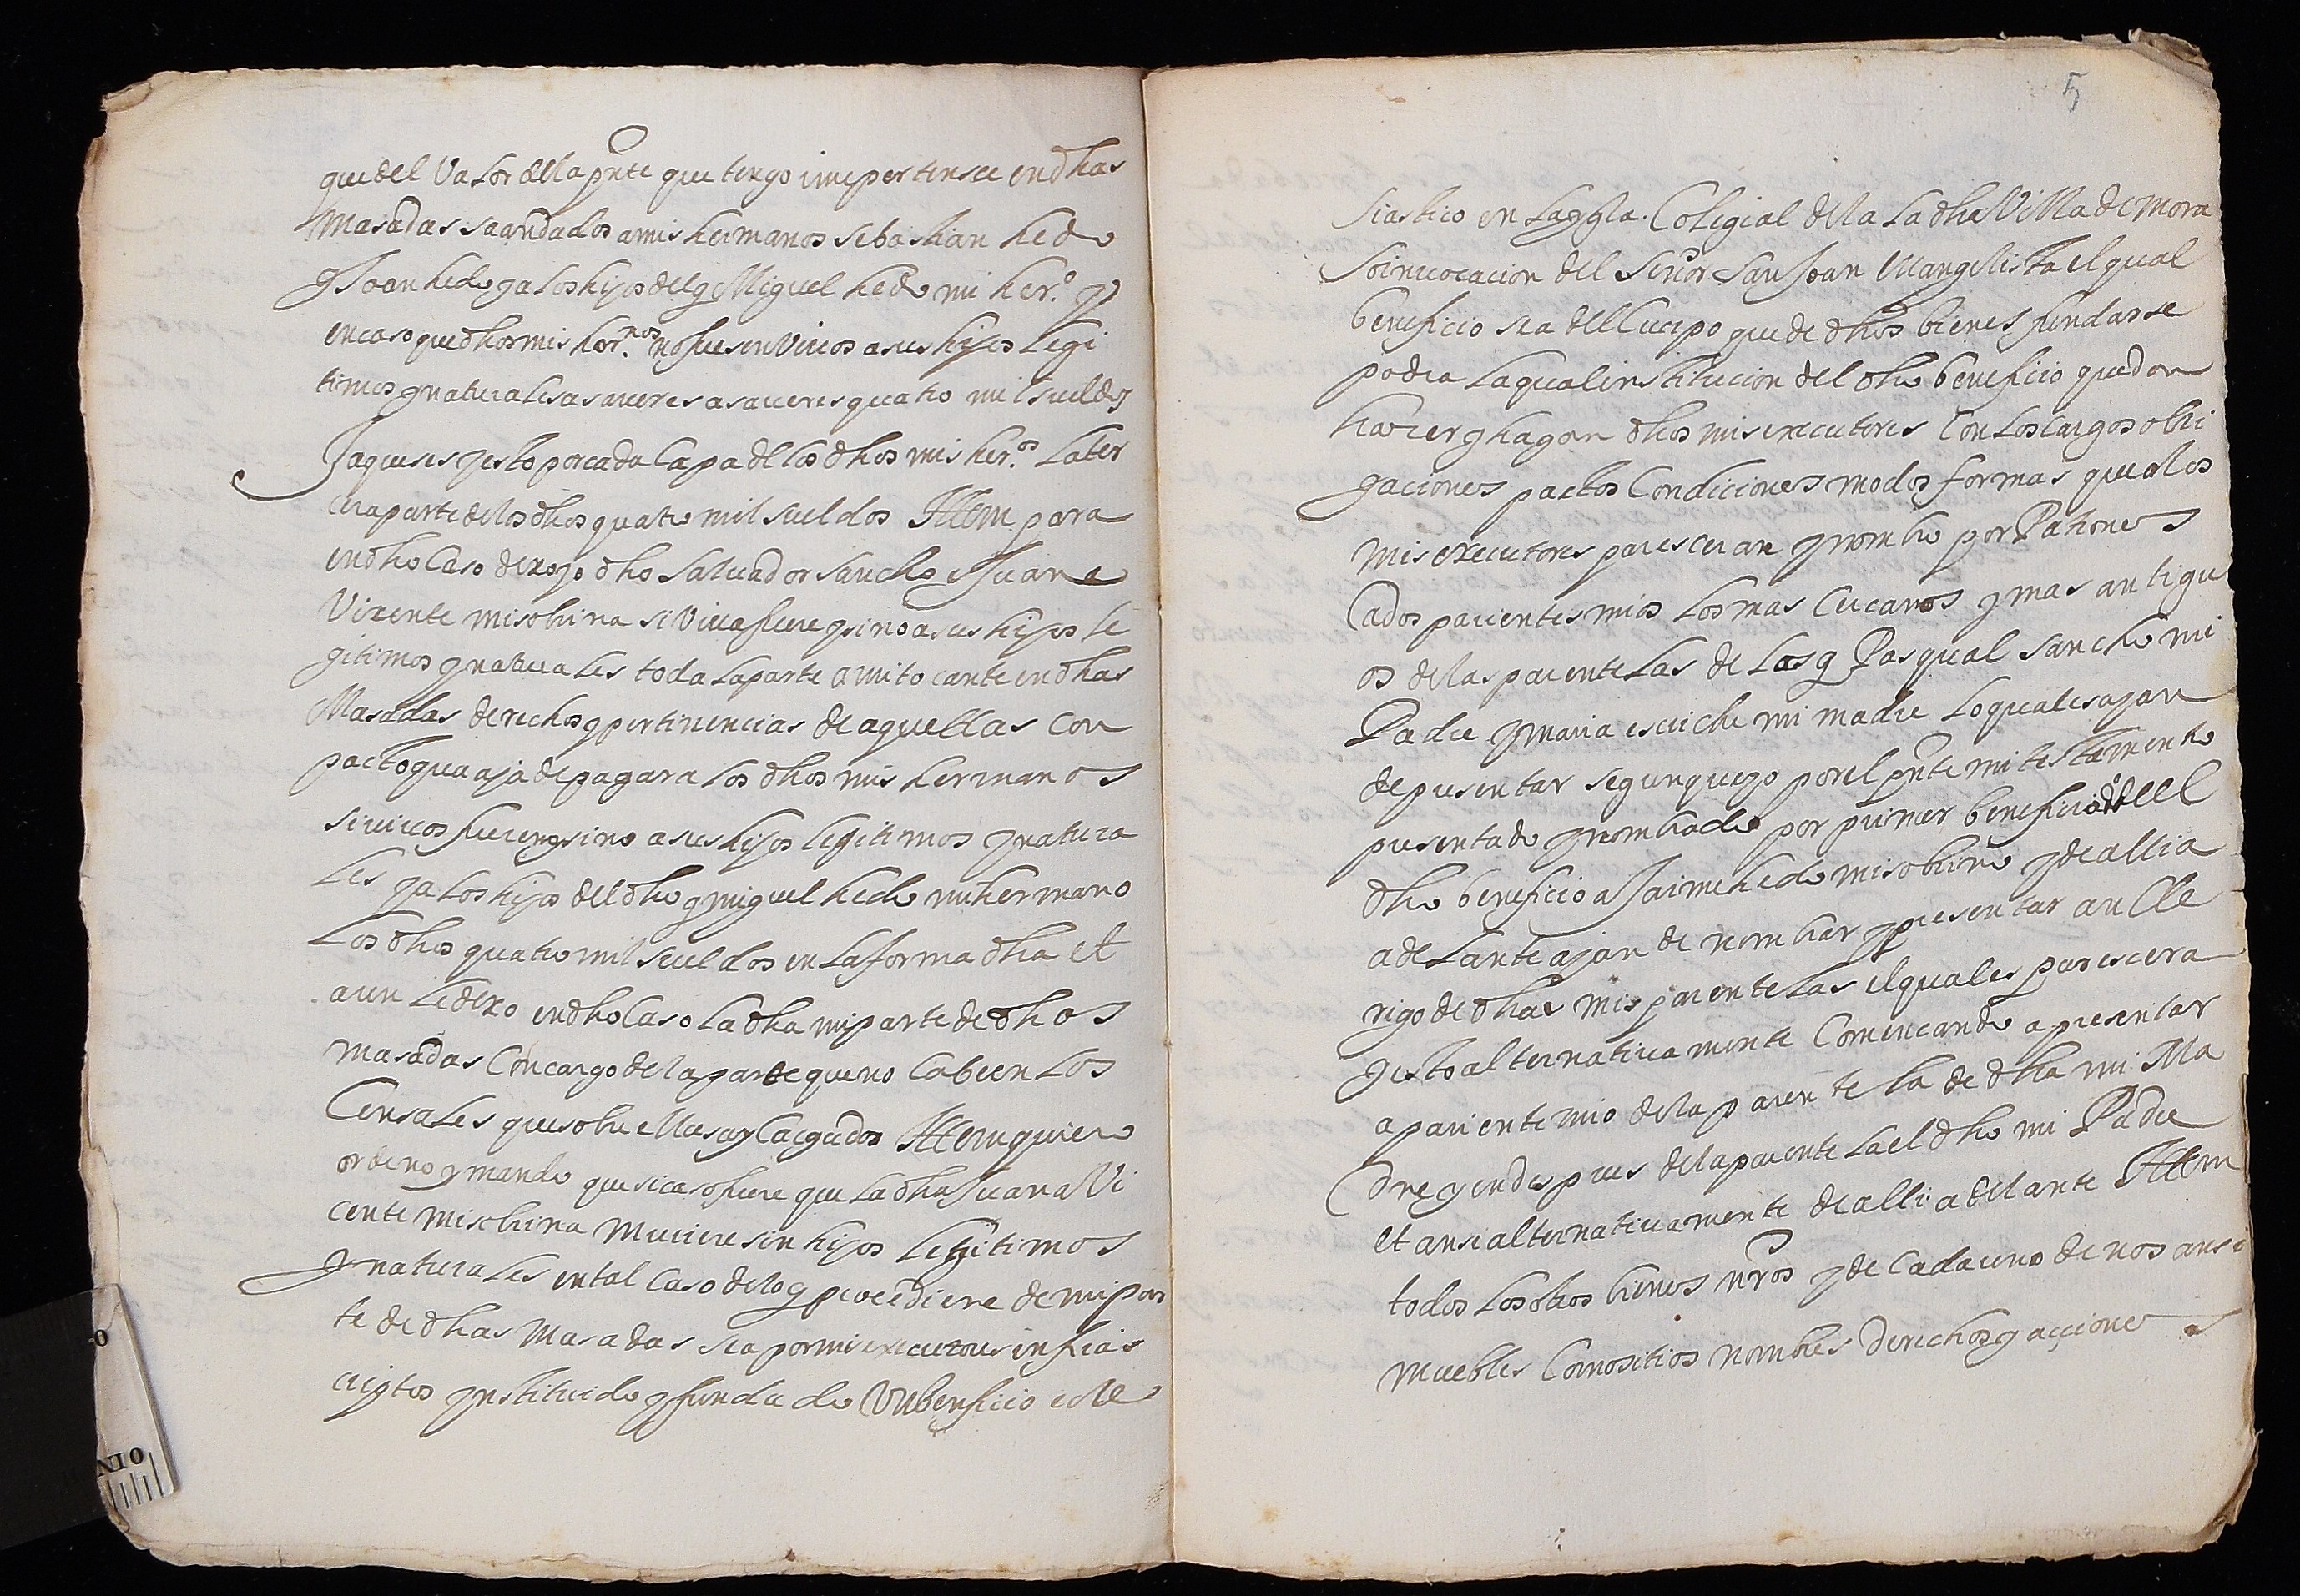 que del Valor della pnte que tengo i me pertensce en dhas
Masadas sean dados a mis hermanos sebastian hedo
y Joan hedo y a los hijos del q Miguel hedo mi her.º y
en caso que dhos mis her.nos no fuesen Viuos a sus hijos legi
timos y naturales a saueres a saueres quatro mil sueldos
Jaqueses y esto por cada Capa de los dhos mis her.os la ter
cera parte de los dhos quatro mil sueldos Item para
en dho Caso dexo yo dho Saluador Sancho a Juana
Vixente mi sobrina si Viua fuere y si no a sus hijos le
gitimos y naturales toda la parte a mi tocante en dhas
Masadas derechos y pertinencias de aquellas con
pacto que aja de pagar a los dhos mis hermanos
si viuos fueren y sino a sus hijos legitimos y natura
les y a los hijos del dho q miguel hedo mi hermano
Los dhos quatro mil sueldos en la forma dha et
aun le dexo en dho Caso la dha mi parte de dhos
masadas Con cargo de la parte que no Caben los
Censales que sobre ellas ay Cargados Item quiero
ordeno y mando que si caso fuere que la dha Juana Vi
cente mi sobrina muriere sin hijos legitimos
y naturales en tal Caso de lo q procediere de mi par
te de dhas Masadas sea por mis executores infras
criptos ynstituido y fundado Vn beneficio ecle
5
siastico en la ygla. Colegial de la la dha Villa de Mora
so inuocacion del Señor San Joan Euangelista el qual
beneficio sea del Cuerpo que de dhos bienes fundarse
podra la qual institucion del dho beneficio quedan
hazer y hagan dhos mis executores Con los cargos obli
gaciones pactos Condiciones modos formas que a los
mis executores paresceran y nombro por Patrones
Cados parientes mios los mas Cercanos y mas antigu
os de las parentelas de los q Pasqual Sancho mi
Padre y maria escriche mi madre lo quales ajan
de presentar segun que yo por el pnte mi testamento
presentado y nombrado por primer beneficiado del
dho beneficio a Jaime hedo mi sobrino y de alli a
adelante ajan de nombrar y presentar an Cle
rigo de dhas mis parentelas el qual es parescera
y esto alternatiuamente Comencando a presentar
a pariente mio de la parentela de dha mi Ma
dre y en despues de la parentela el dho mi Padre
et ansi alternatiuamente de alli adelante Item
todos los otros bienes nros y de Cada uno de nos ansi
muebles Como sitios nombres derechos y acçiones